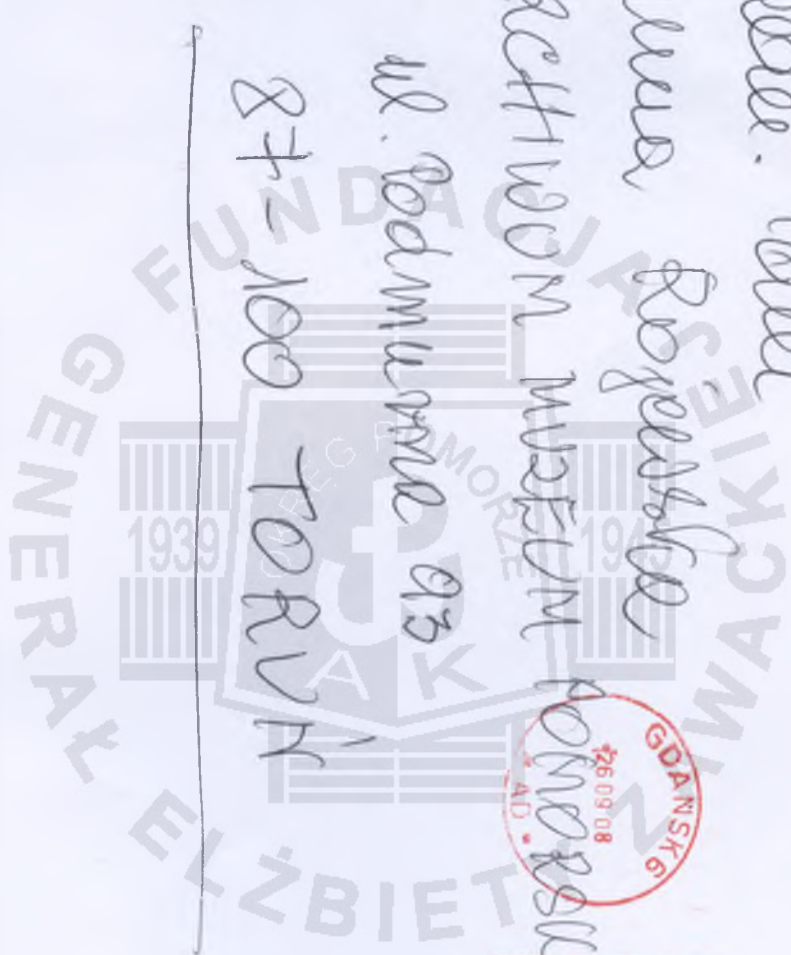 Rojewska
ARCHIWUM MUZEUM POMORSK
ul. Podmurna 93
87-100 TORUŃ
GDAŃSK 6
26 09 08
AD
FUNDACJA GENERAŁ ELŻBIETY ZAWACKIEJ
OKRĘG POMORZE
1939 1945
AK